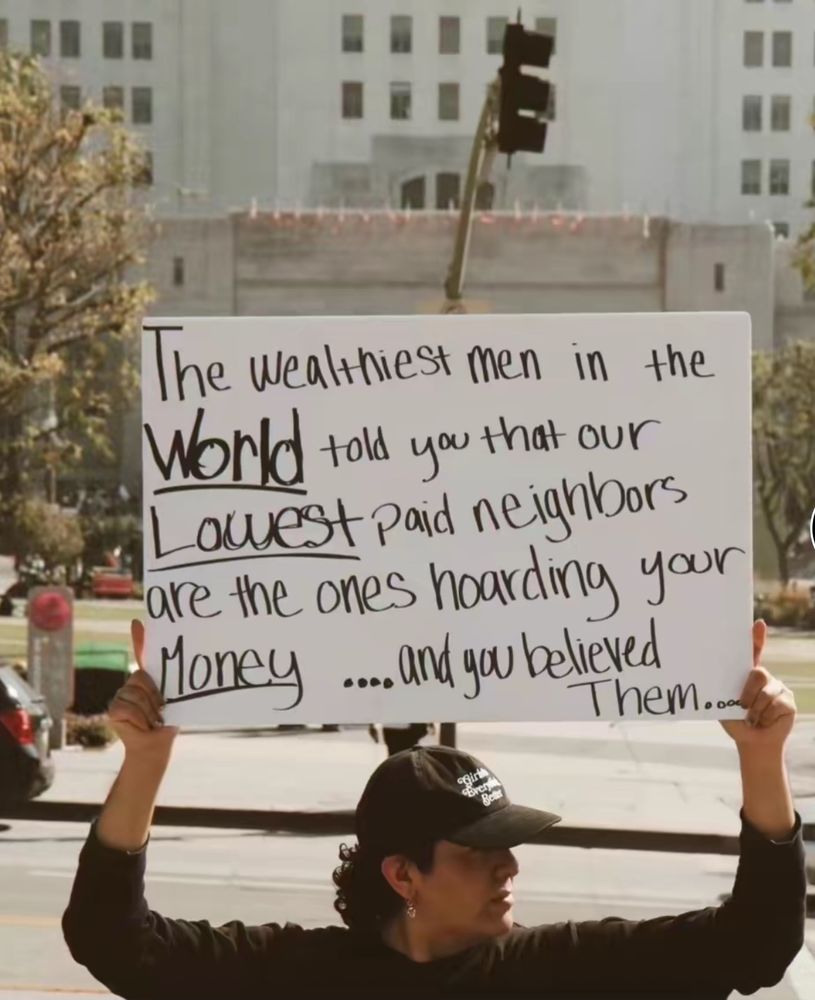 The wealthiest men in the
World told you that our
Lowest paid neighbors
are the ones hoarding your
Money ....and you believed
Them....
Girls
Better